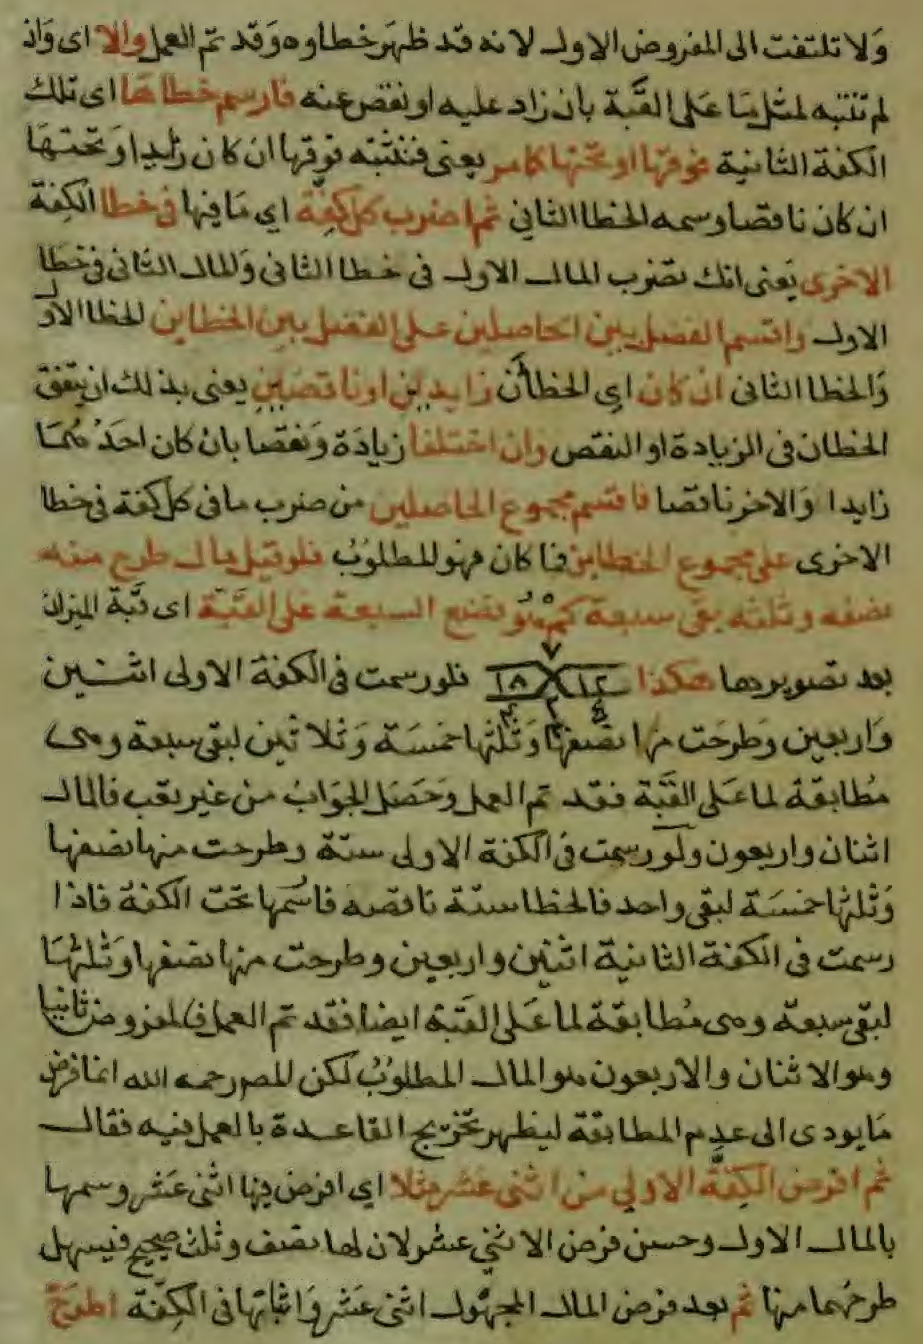 وَلا تلتفت الى المفروض الاول لانه قد ظهَر خطاوه وَقد تم العمل والا اى وَان
لم تثبته لمثل مَا عَلى القبَّة بان زاد عليه او نقص عنه فارسم خطاها اى تلك
الكفة الثانية فوقها او تحتها كما مر يعنى فتثبته فوقها ان كان زايدا وَ تحتهَا
ان كان ناقصا وسمه الخطا الثانى ثم اضرب كل كفّة اى مَا فيها فى خطا الكِفة
الاخرى يَعنى انك تضرب المال الاول فى خطا الثانى وَالمال الثانى فى خطا
الاول واقسم الفضل بين الحاصلين على الفضل بين الخطاين الخطا الاول
وَالخطا الثانى ان كان اىِ الخطأن زايدين او ناقصَين يعنى بذلك ان يتفق
الخطان فى الزيادة او النقص وان اختلفا زيادَة وَنقصا بان كان احَدهُمَا
زايدا وَالاخر ناقصا فاقسم مجموع الحاصلين من ضرب ما فى كل كفة فى خطا
الاخرى على مجموع الخطاين فما كان فهو المطلوبُ فلو قيل مال طرح منه
نصفه وثلثه بقى سبعة كم هُو تضع السبعة على القبّة اى قبّة الميزان
بعد تصويرها هكذا ٧ ١٢ ١٨ فلو رسمت فى الكفة الاولى اثنين
وَاربعين وَطرحَت منها نصفها وَثلثها خمسَة وَثلاثين لبقى سبعة وهى
مُطابقة لما عَلى القبَّة فقد تم العمل وَحَصَل الجوَابُ من غير تعب فالمال
اثنان واربعون ولو رسمت فى الكفة الاولى ستة وطرحت منها نصفها
وَثلثها خمسَة لبقى واحد فالخطا ستة ناقصه فاسمها تحت الكفة فاذا
رسمت فى الكفة الثانية اثنين واربعين وطرحت منها نصفها وَثلثهَا
لبقى سبعة وهى مُطابقة لما عَلى القبّة ايضا فقد تم العمل فالمفروض ثانيا
وهو الاثنان والاربعون هو المال المطلوبُ لكن المص رحمه الله انما فرض
مَا يودى الى عدم المطابقة ليظهر تخريج القاعدة بالعمل فيه فقال
ثم افرض الكِفّة الاولى من اثنى عشر مثلا اى افرض فيها اثنى عَشر وسمها
بالمال الاول وحسن فرض الاثنى عشر لان لها نصف وثلث صحيح فيسهل
طرحُهما منها ثم بعد فرض المال المجهول اثنى عَشر وَاثباتها فى الكِفّة اطرَحْ